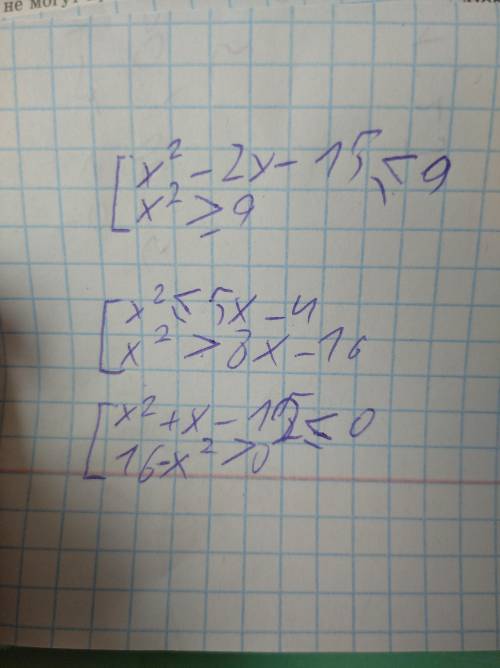 не могу
[x² - 2x - 15 ≤ 9
x² ≥ 9
[x² ≤ 5x - 4
x² > 8x - 16
[x² + x - 12 ≤ 0
16 - x² > 0